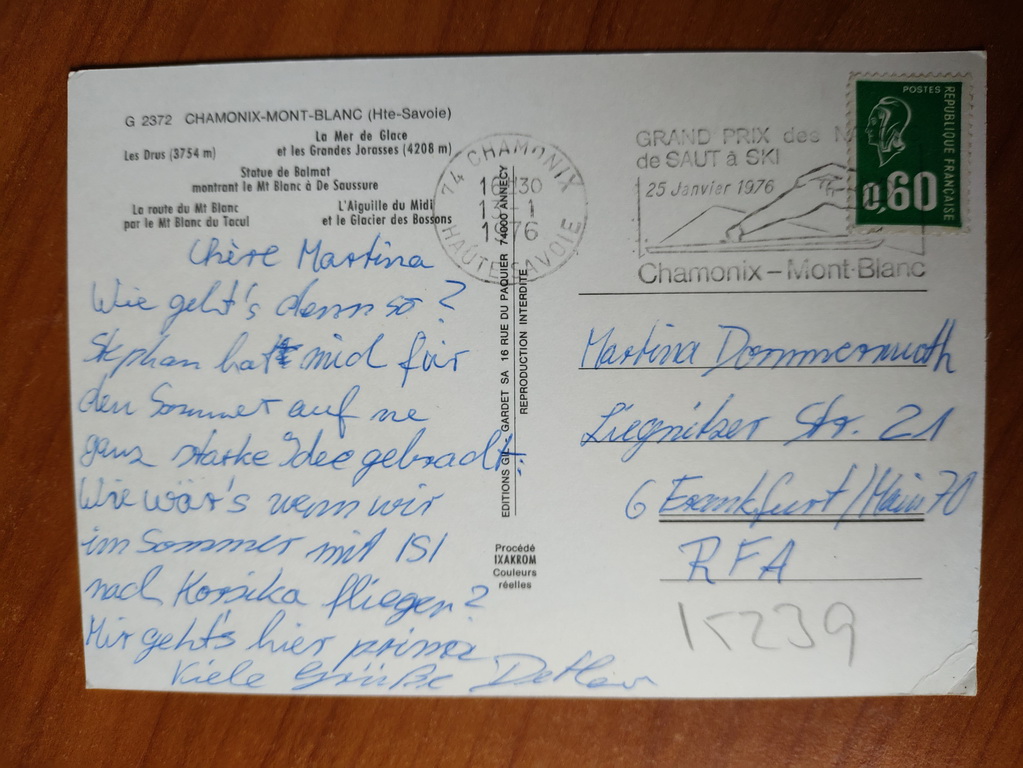 G 2372 CHAMONIX-MONT-BLANC (Hte-Savoie)
La Mer de Glace
Les Drus (3754 m) et les Grandes Jorasses (4208 m)
Statue de Balmat
montrant le Mt Blanc à De Saussure
La route du Mt Blanc L'Aiguille du Midi
par le Mt Blanc du Tacul et le Glacier des Bossons
Chère Martina
Wie geht's denn so?
Stephan hat mich für
den Sommer auf ne
ganz starke Idee gebracht:
Wie wär's wenn wir
im Sommer mit ISI
nach Korsika fliegen?
Mir geht's hier prima
Viele Grüße Detlev
EDITIONS GIL GARDET SA 16 RUE DU PAQUIER 74000 ANNECY
REPRODUCTION INTERDITE
Procédé
IXAKROM
Couleurs
réelles
74 CHAMONIX
16H30
13-1
1976
HAUTE-SAVOIE
GRAND PRIX des
de SAUT à SKI
25 Janvier 1976
Chamonix-Mont-Blanc
POSTES
REPUBLIQUE FRANÇAISE
0,60
Martina Dommermuth
Liegnitzer Str. 21
6 Frankfurt/Main 70
RFA
15239